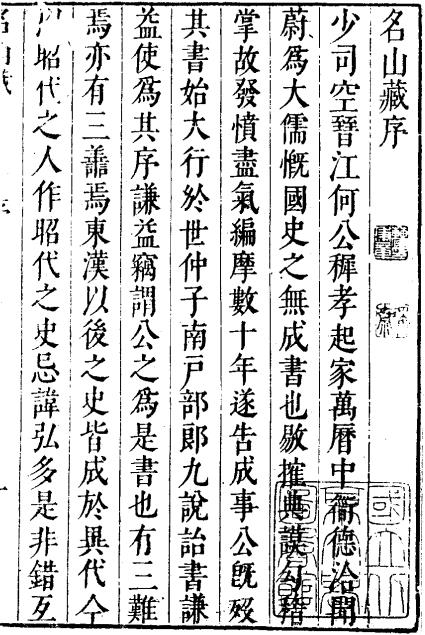 名山藏序
少司空晉江何公穉孝起家萬曆中衞德洽聞
蔚爲大儒慨國史之無成書也敭搉典謨勾稽
掌故發憤盡氣編摩數十年遂告成事公旣歿
其書始大行於世仲子南戶部郎九說詒書謙
益使爲其序謙益竊謂公之爲是書也有三難
焉亦有三善焉東漢以後之史皆成於異代今
以昭代之人作昭代之史忌諱弘多是非錯互